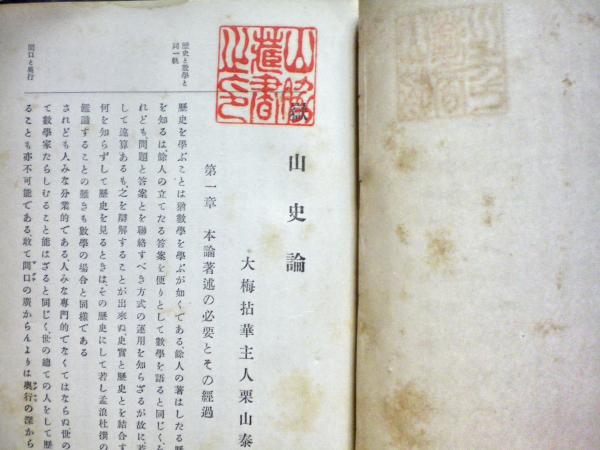 山脇
蔵書
之印
嶽山史論
大梅拈華主人栗山泰
第一章 本論著述の必要とその經過
歷史と數學と
同一軌
歷史を學ぶことは猶數學を學ぶが如くである、餘人の著はしたる歷
を知るは餘人の立てたる答案を便りとして數學を語ると同じく、
れども、問題と答案とを聯絡すべき方式の運用を知らざるが故に、若
して違算あるも、之を辯解することが出來ぬ史實と歷史とを結合す
何を知らずして歷史を見るときは、その歷史にして若し孟浪杜撰の
鑑識することの難きも數學の場合と同樣である
間口と奧行
されども人みな分業的である、人みな專門的でなくてはならぬ、世の
て數學家たらしむること能はざると同じく、世の總ての人をして歷
ることも亦不可能である、敢て間口の廣からんよりは奧行の深から